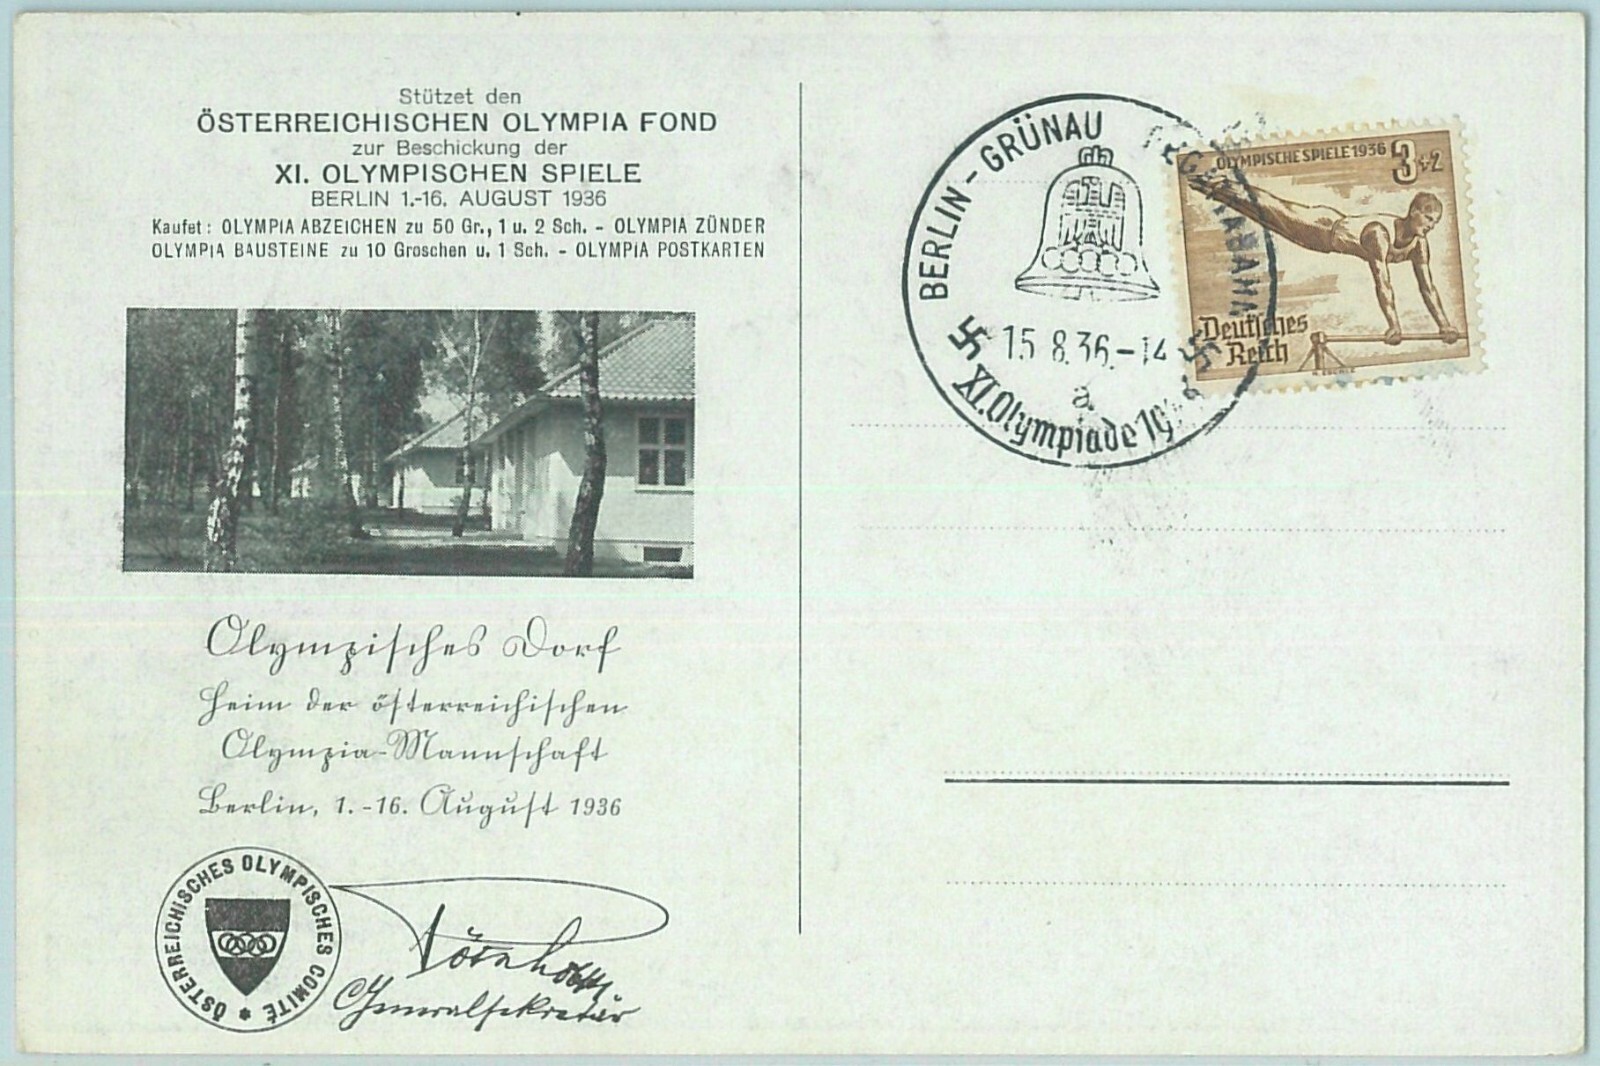 Stützet den
ÖSTERREICHISCHEN OLYMPIA FOND
zur Beschickung der
XI. OLYMPISCHEN SPIELE
BERLIN 1.-16. AUGUST 1936
Kaufet: OLYMPIA ABZEICHEN zu 50 Gr., 1 u. 2 Sch. - OLYMPIA ZÜNDER
OLYMPIA BAUSTEINE zu 10 Groschen u. 1 Sch. - OLYMPIA POSTKARTEN
Olympisches Dorf
Heim der österreichischen
Olympia-Mannschaft
Berlin, 1.-16. August 1936
ÖSTERREICHISCHES OLYMPISCHES COMITÉ *
Generalsekretär
BERLIN - GRÜNAU
15.8.36.-14
a
XI. Olympiade 19
OLYMPISCHE SPIELE 1936 3+2
Deutsches
Reich